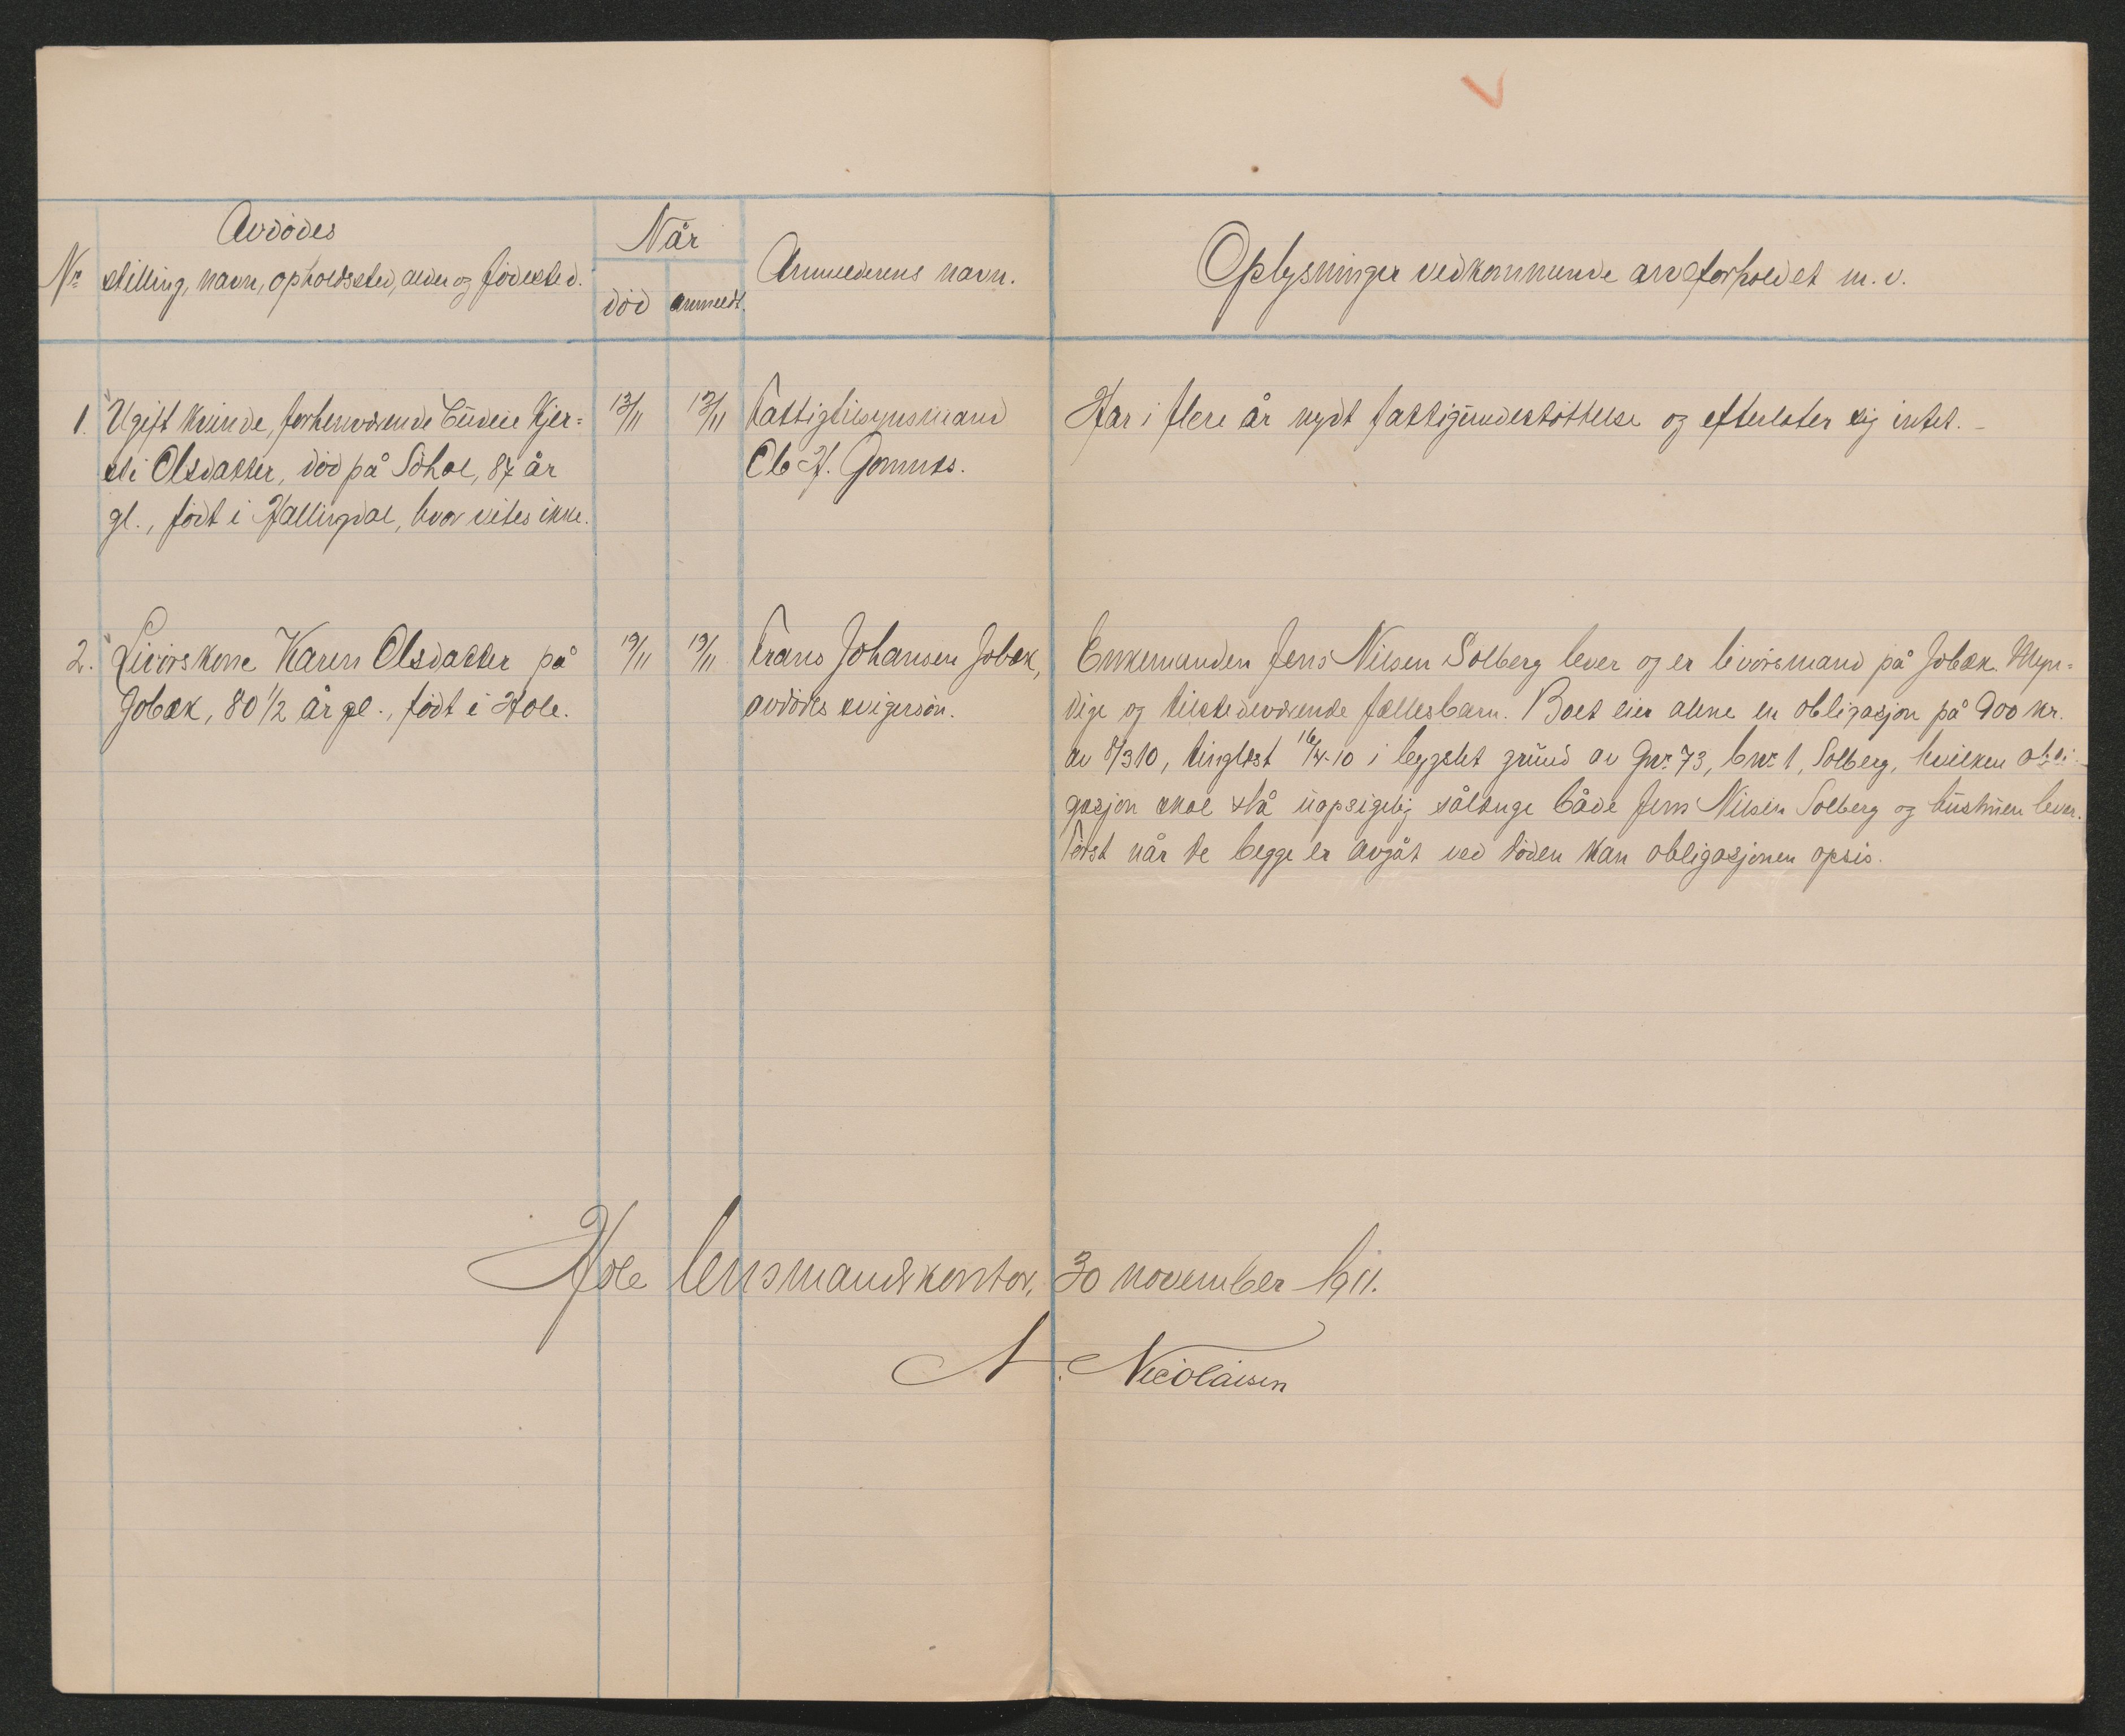 Avdödes
Nr. stilling, navn, opholdssted, alder og födested.
Når
död anmeldt.
Anmelderens navn.
Oplysninger vedkommende arveforholdet m. v.
1. Ugift kvinde, forhenværende budeie Kjer=
sti Olsdatter, död på Söhol, 87 år
gl., födt i Hallingdal, hvor vites ikke.
13/11 13/11
Fattigtilsynsmand
Ole H. Gomnes.
Har i flere år nydt fattigunderstöttelse og efterlater sig intet. -
2. Livörskone Karen Olsdatter på
Jobæk, 80 1/2 år gl., födt i Hole.
19/11 19/11
Frans Johansen Jobæk,
avdödes svigersön.
Enkemanden Jens Nilsen Solberg lever og er livörsmand på Jobæk. Myn=
dige og tilstedeværende fællesbarn. Boet eier alene en obligasjon på 900 kr.
av 8/3 10, tinglæst 16/4-10 i bygslet grund av Gnr. 73, bnr. 1, Solberg, hvilken obli=
gasjon skal stå uopsigelig sålænge både Jens Nilsen Solberg og hustruen lever.
Först når de begge er avgåt ved döden kan obligasjonen opsis.
Hole lensmandskontor, 30 november 1911.
N. Nicolaisen